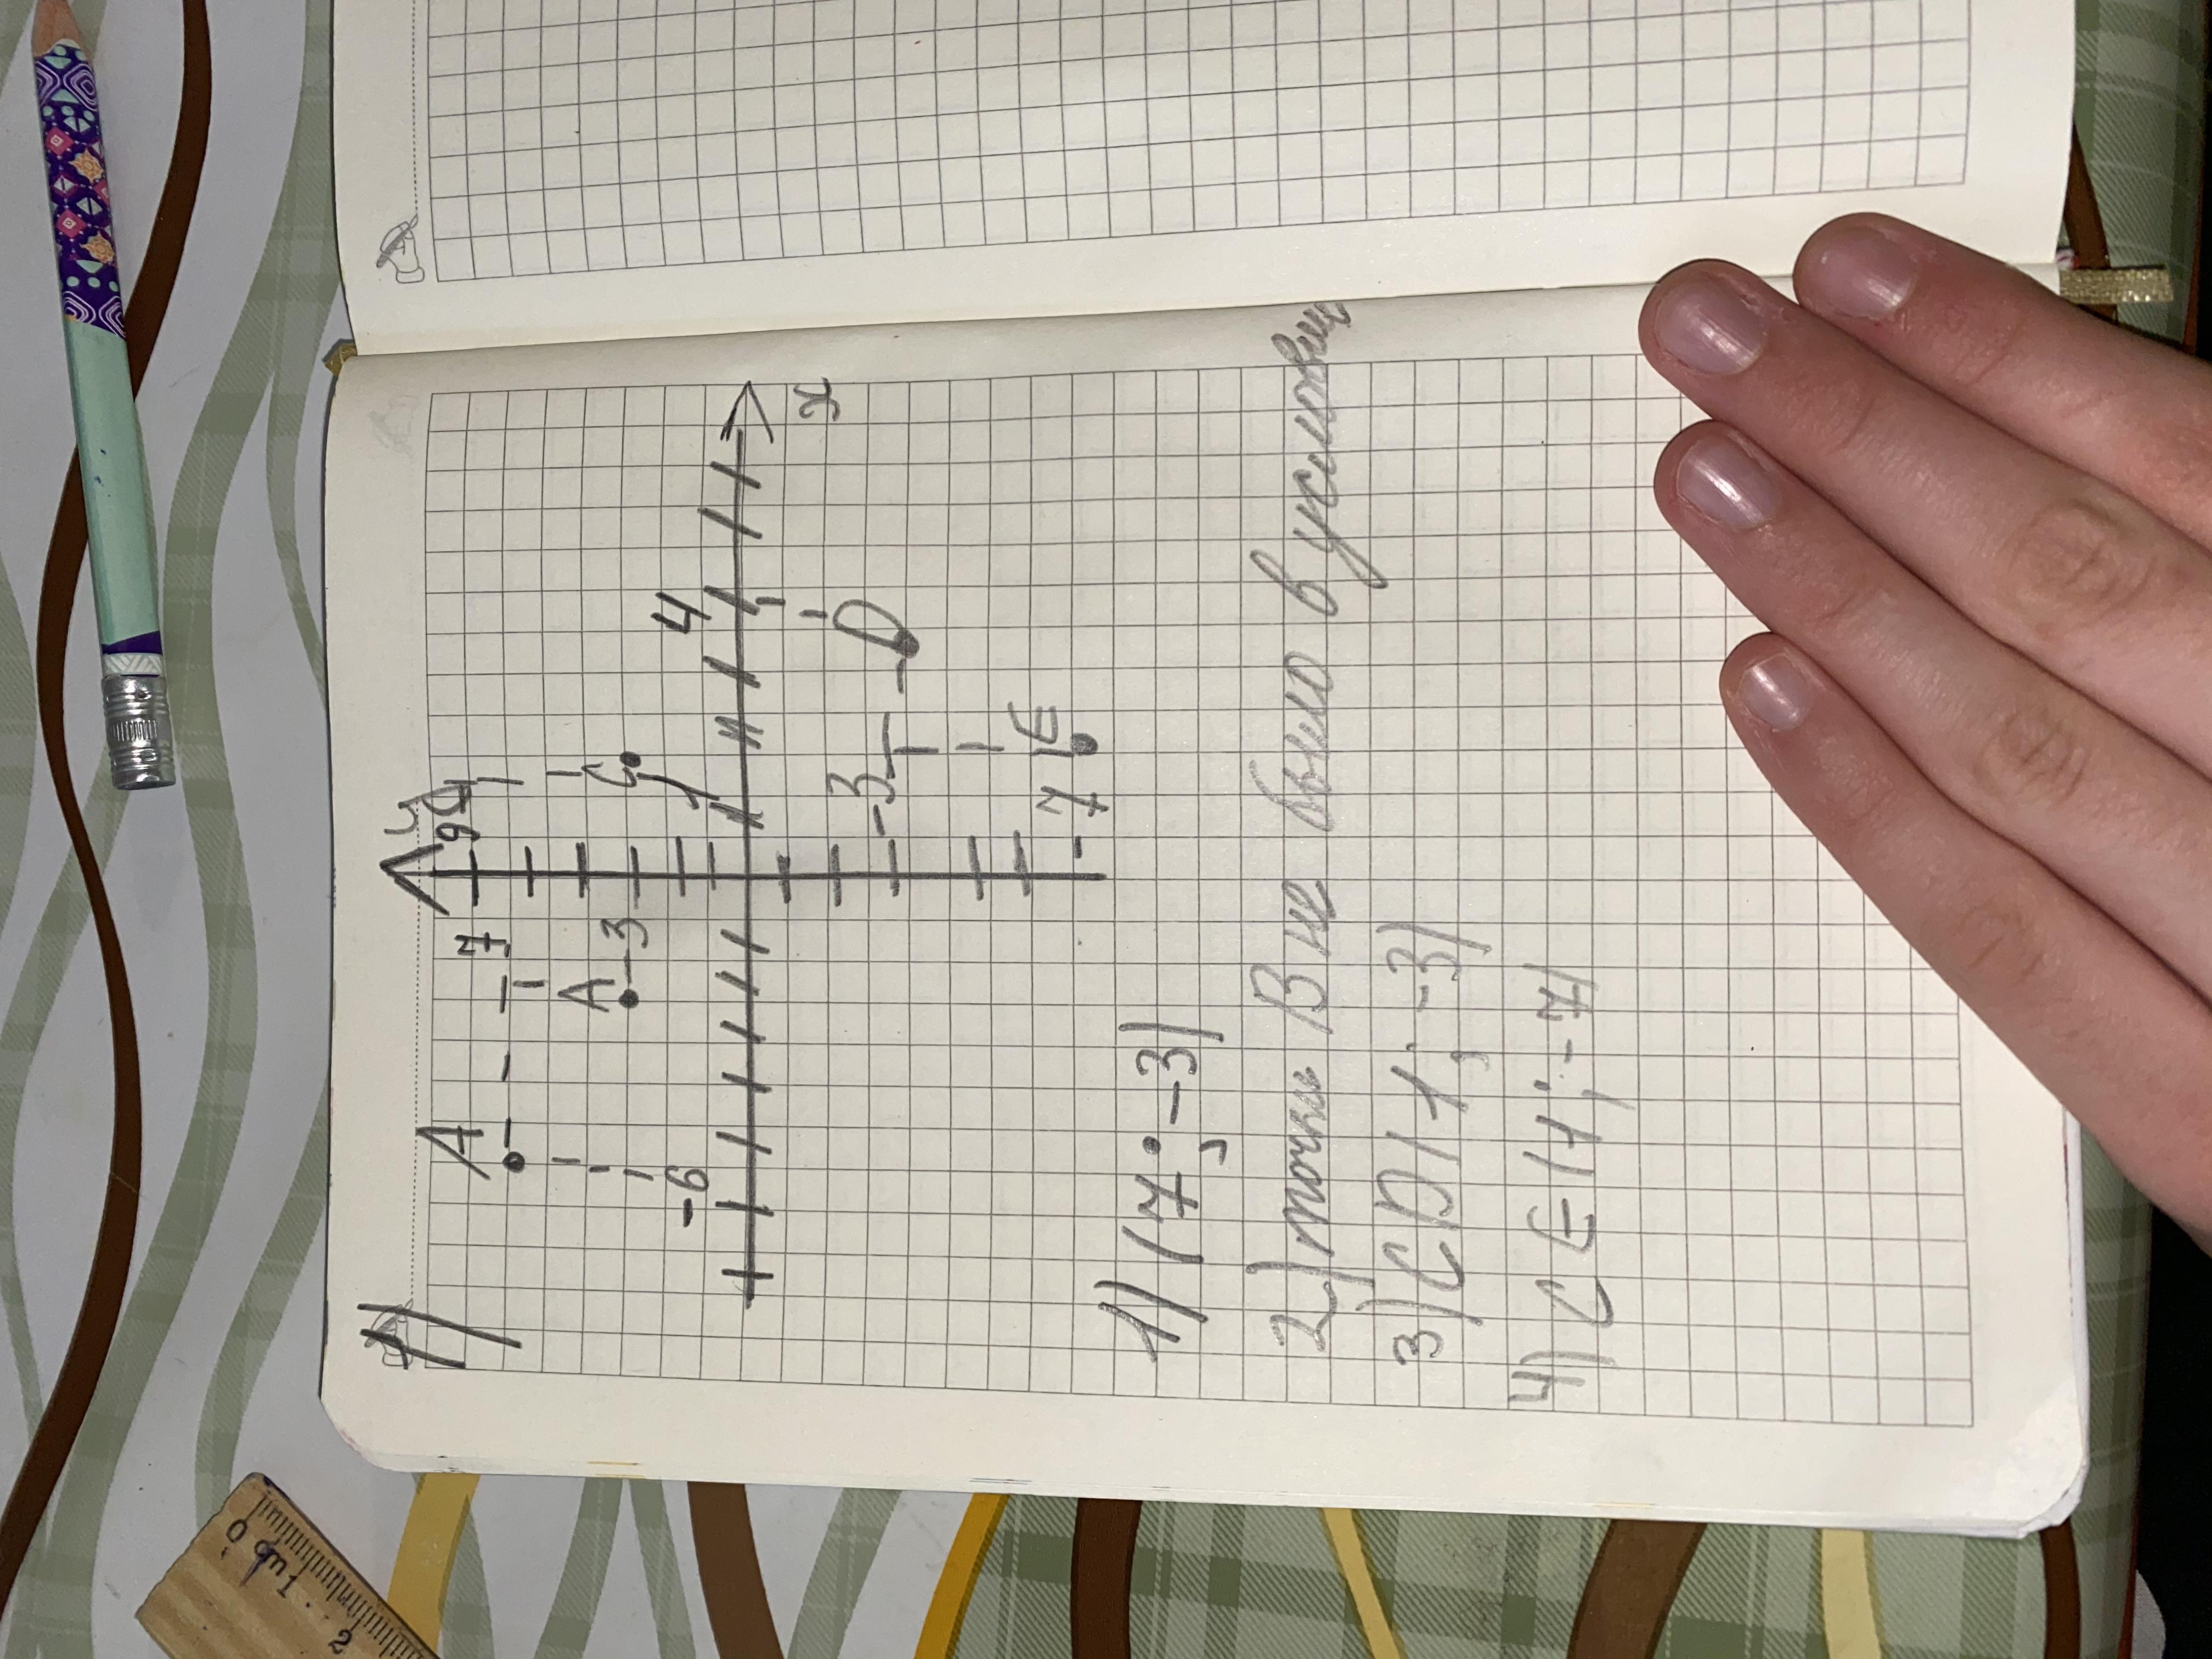 1)
y
9
A
7
A
3
C
-6
1
4
x
-3
D
-7
E
1) (7; -3)
2) точки В не было в условии
3) CD (1; -3)
4) CE (1; -7)
0 cm 1 2